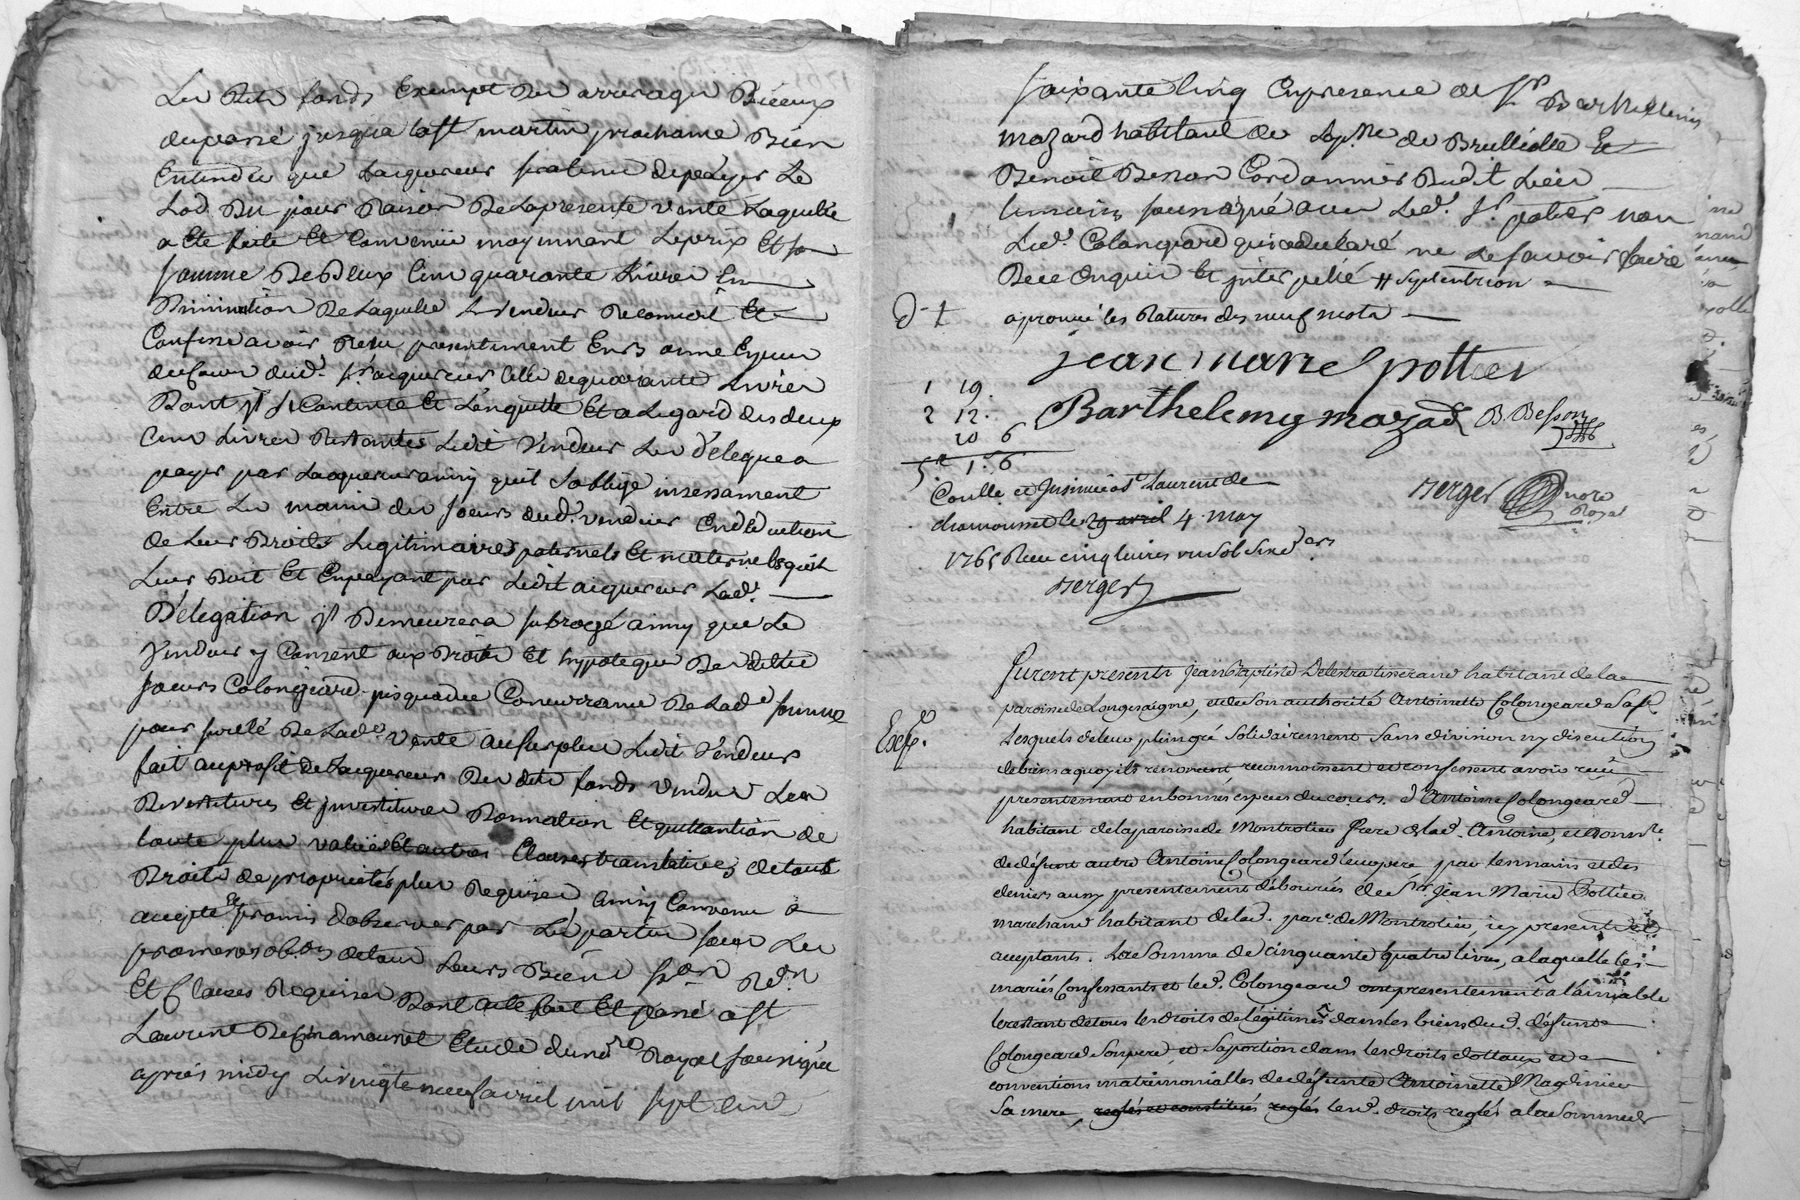 Les dits fonds Exempt des arrerages Biceaux
du passé jusqua la st martin prochaine Bien
Entendu que Lacquereur sera tenu de payer Le
Lod Du jour Raison De La presente vente Laquelle
a Eté faite Et Convenüe moyennant Le prix Et
somme De Deux Cent quarante Livres En
Diminution De Laquelle Le vendeur Reconnoit Et
Confesse avoir Receu presentement
dud. sr acquereur Celle de quarante Livres
Dont jl se Contente Et L'enquitte Et a Legard des deux
Cent Livres Restantes Ledit Vendeur Les délegue a
payer par Lacquereur ainsy quil soblige incessament
Entre Les mains des soeurs dud. vendeur En deduction
de Leurs Droits Legitimaires paternels Et maternels quil
Leur Doit Et En payant par Ledit acquereur Lad.
Délegation jl Demeurera subrogé ainsy que Le
Vendeur y Consent aux Droits Et hypoteques Des dittes
soeurs Colongeard jusqua due Concurrance De Lad. somme
pour sureté De Lad. vente au surplus Ledit Vendeur
fait au profit de Lacquereur Des dits fonds vendus Les
Devestitures Et jnvestitures Donnation Et quittantion de
toute plus valüe Et autres Clauses translatives de tout
Droits de proprietés plus Requises ainsy Convenu
accepté et promis d'observer par Les parties sous Les
promesses obon de tous Leurs Biens son Ron
Et Clauses Requises Dont acte fait Et passé a st
Laurent De Chamousset Etude du nore Royal soussigné
après midy Le vingt neuf avril mil sept cent
soixante cinq En presence de sr Barthelemis
mozard habitant de La psse de Brulliolle Et
Benoit Besson Cordonnier Dudit Lieu
temoins soussigné avec Led. sr potier non
Led. Colongeard qui a declaré ne le savoir faire
De ce Enquis Et jnterpellé # Septentrion
aprouvé les Ratures des neuf mots
d t
jean marie pottier
1 19.
2 12.
10 6
5# 1. 6
Barthelemy mozad B. Besson
Berger nore Royal
Conlle et Jnsinué a st Laurent de
chamousset le 29 avril 4 may
1765 Receu cinq livres un sol six drs
Berger
Exp.
Furent presents jean Baptiste Delestra tisserand habitant de la
paroisse de Longesaigne, et de son authorité Antoinette Colongeard sa fe
Lesquels de leur plein gré solidairement sans division ny discution
de biens a quoy ils renoncent, reconnoissent et confessent avoir receu
presentement en bonnes especes du cours. d'Antoine Colongeard
habitant de la paroisse de Montrotier frere de lad. Antoine, et donnre
de défunt autre Antoine Colongeard leur pere par les mains et des
deniers aussy presentement débourcés de sr Jean Marie Pottier
marchand habitant de lad. parse de Montrotier, icy present et
acceptants. La somme de cinquante quatre livres, a laquelle les
mariés Confessants et led. Colongeard ont presentement a l'amiable
le restant de tous les droits de légitimes dans les biens dud. défunt
Colongeard son pere, et sa portion dans les droits dottaux et
conventions matrimonialles de défunte Antoinette Magdinier
sa mere, reglés et constitués reglés led. droits reglés a la somme de